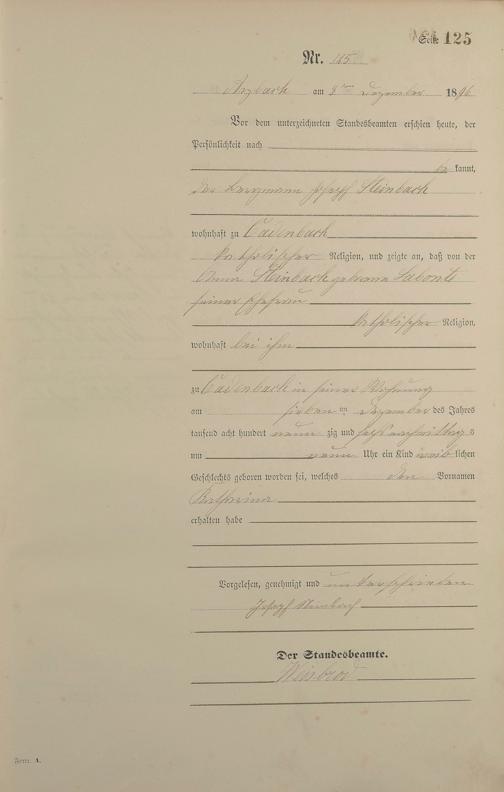 Seite 125
Nr. 115
Arzbach am 8ten Dezember 1896
Vor dem unterzeichneten Standesbeamten erschien heute, der
Persönlichkeit nach
be kannt,
der Bergmann Joseph Steinbach
wohnhaft zu Cadenbach
katholischer Religion, und zeigte an, daß von der
Anna Steinbach geborene Labonte
seiner Ehefrau
katholischer Religion,
wohnhaft bei ihm
zu Cadenbach in seiner Wohnung
am sieben ten Dezember des Jahres
tausend acht hundert neun zig und sechs nachmittag s
um neun Uhr ein Kind weib lichen
Geschlechts geboren worden sei, welches den Vornamen
Katharina
erhalten habe
Vorgelesen, genehmigt und unterschrieben
Joseph Steinbach
Der Standesbeamte.
Weisbrod
Form. A.